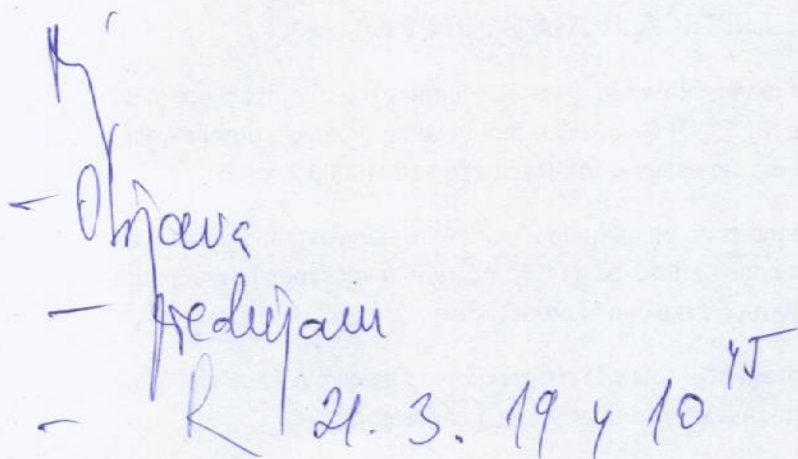 - Objava
- predujam
- R 21. 3. 19 u 10 45